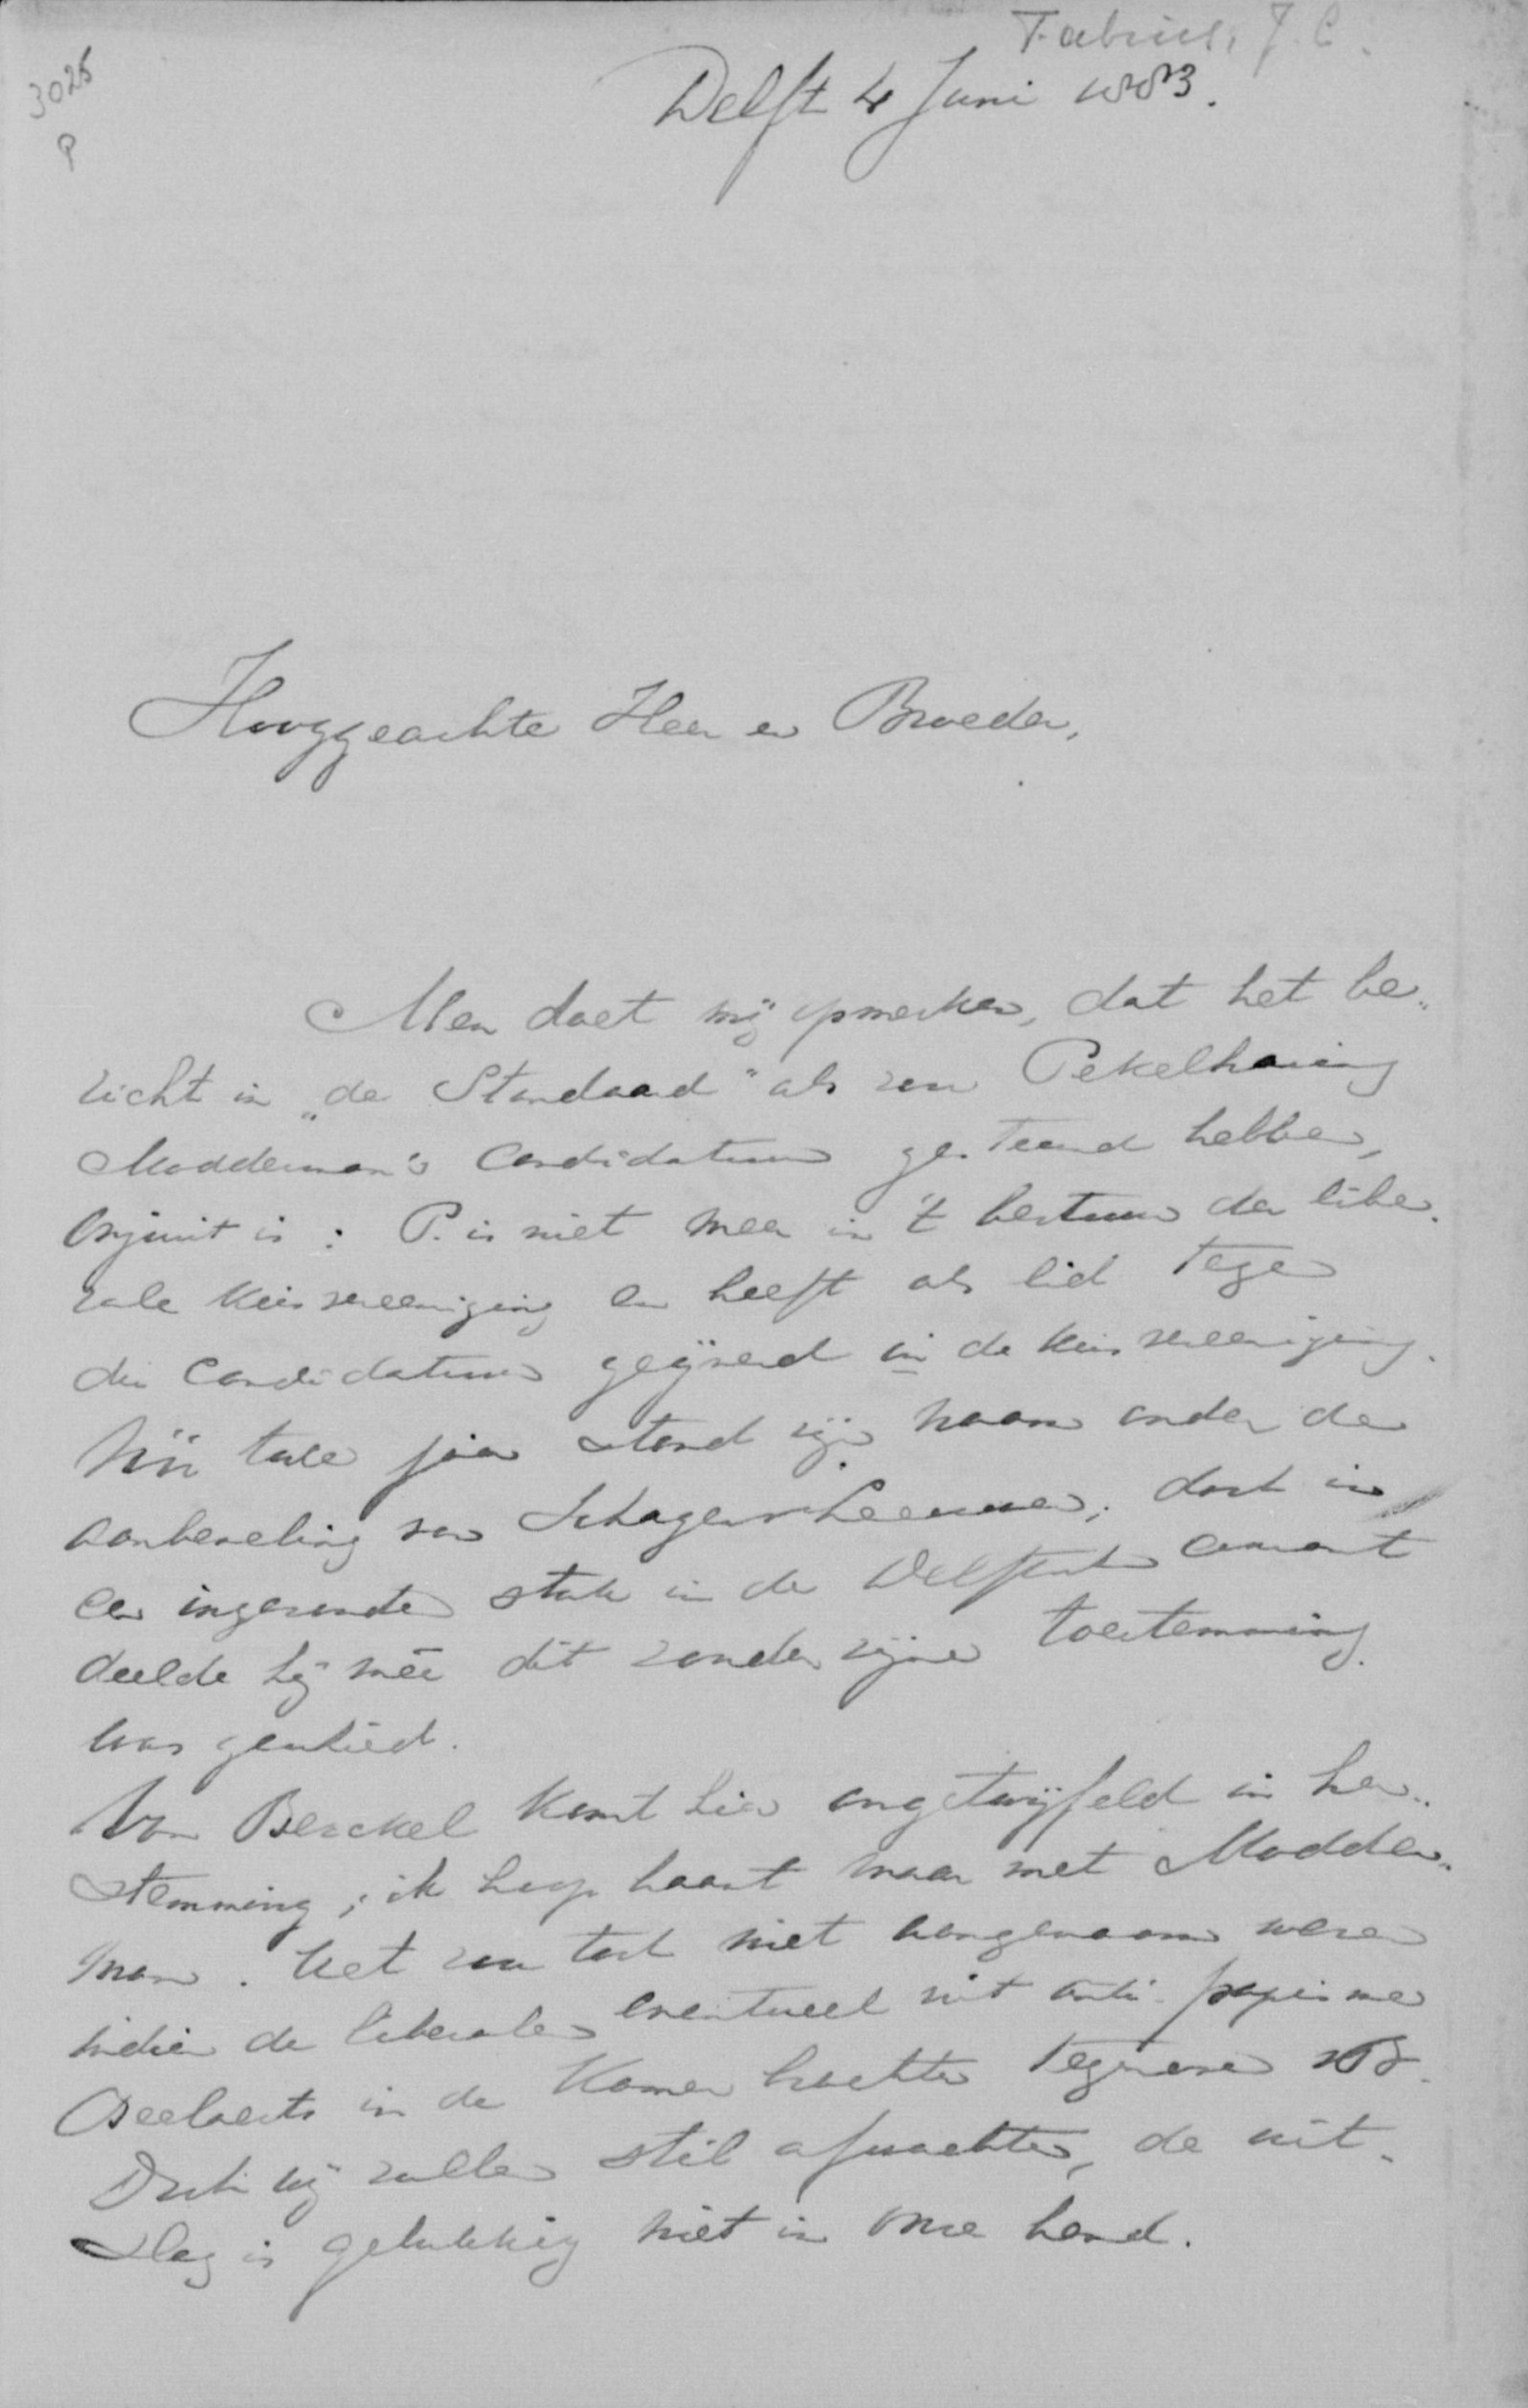 Fabius, J. C.
3026
P
Delft 4 Juni 1883.
Hooggeachte Heer en Broeder,
Men doet mij opmerken, dat het be-
richt in „de Standaard" als zou Pekelharing
Modderman's Candidatuur gesteund hebben,
onjuist is: P. is niet meer in 't bestuur der libe-
rale kiesvereeniging en heeft als lid tegen
die Candidatuur geijverd in de kiesvereeniging.
Nu twee jaar stond zijn naam onder de
aanbeveling van Schagen v Leeuwen; doch in
een ingezonden stuk in de Delftsche Courant
deelde hij mêe dit zonder zijne toestemming
was geschied.
Van Berckel komt hier ongetwijfeld in her-
stemming; ik hoop haast maar met Modder-
man. Het zou toch niet aangenaam wezen
indien de liberalen eventueel uit anti-papisme
Beelaerts in de Kamer brachten tegenover vB.
Doch wij zullen stil afwachten, de uit-
slag is gelukkig niet in onze hand.